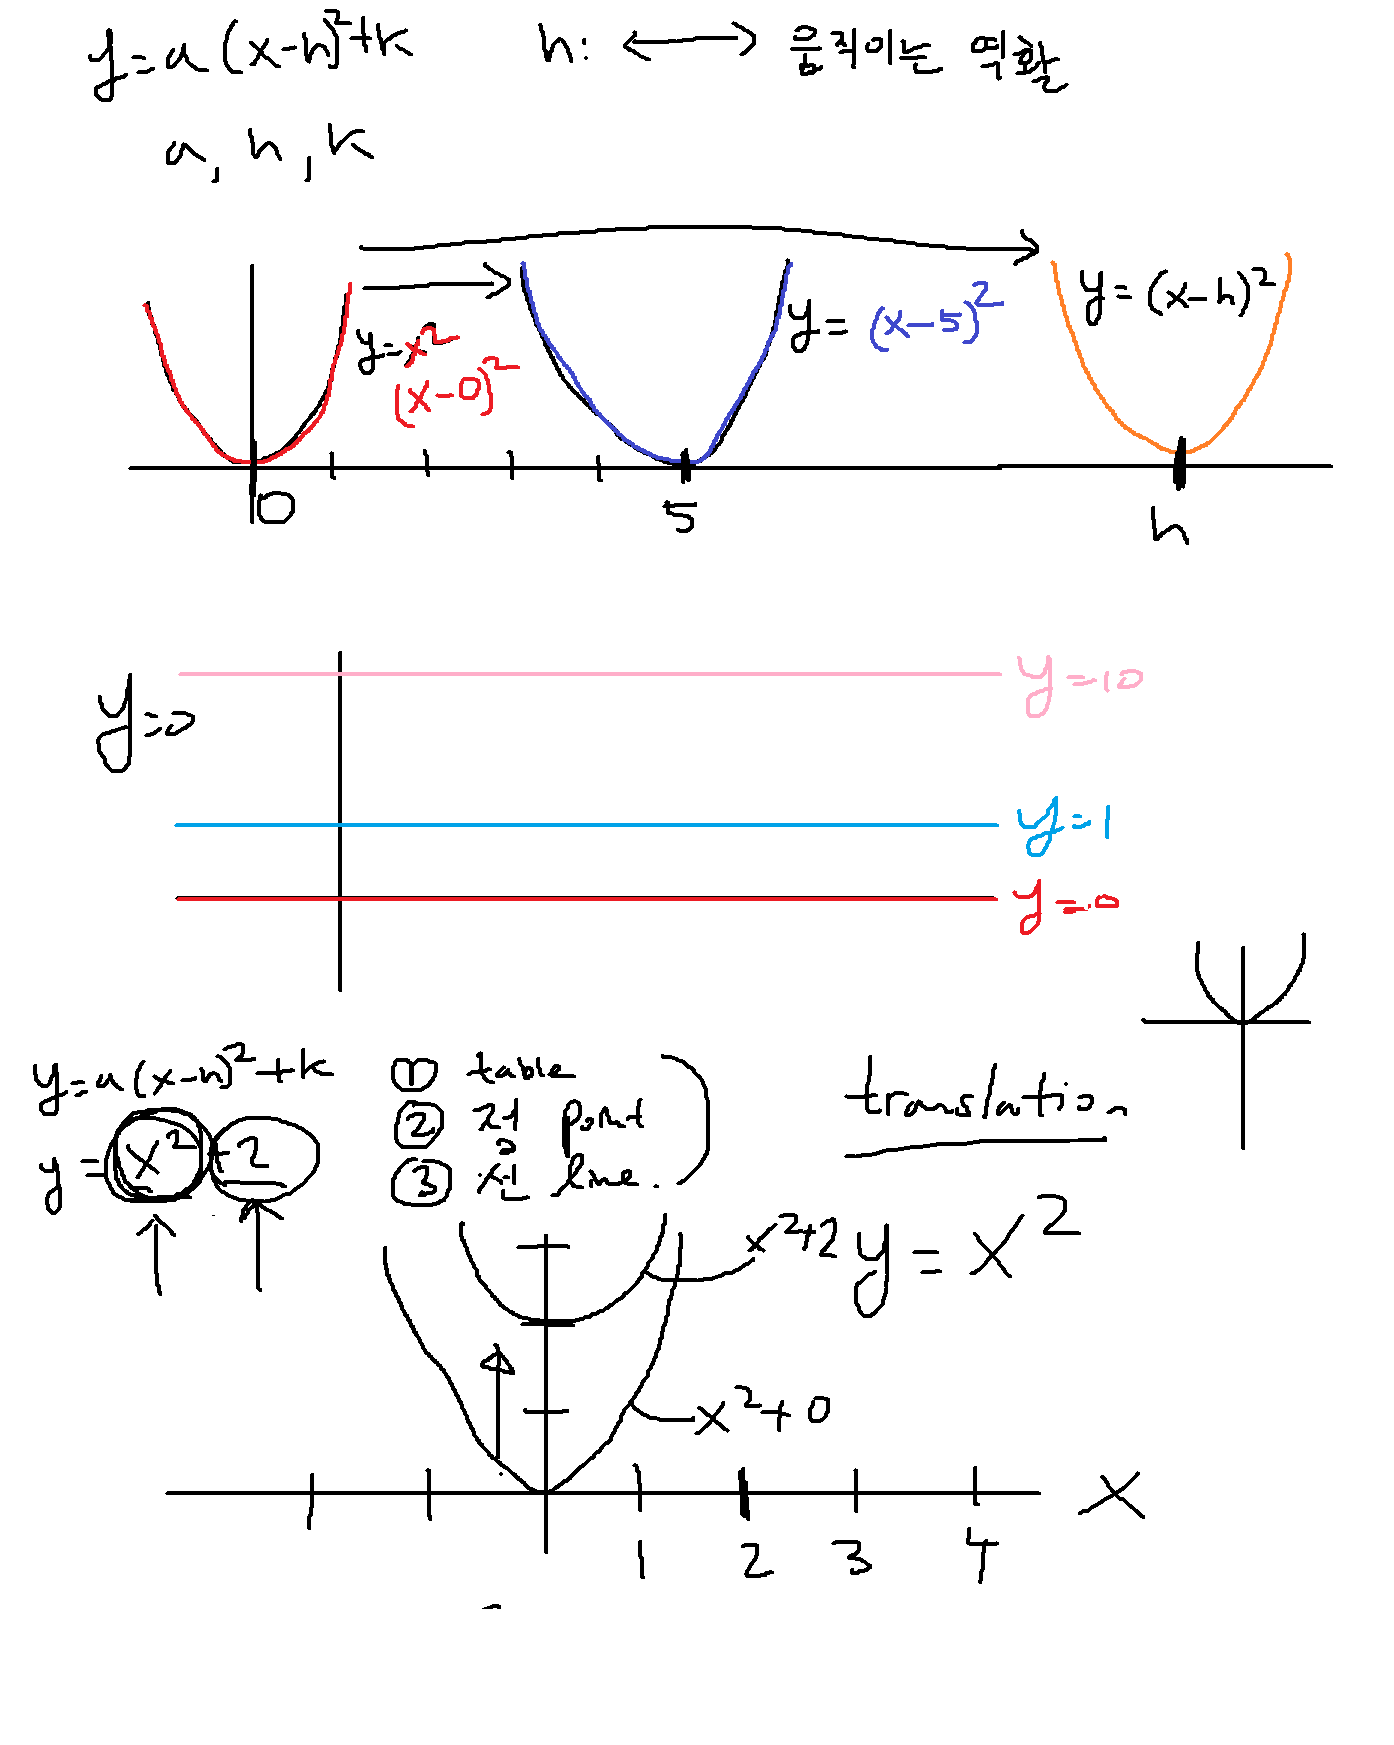 y=a(x-h)²+k h: ⟷ 움직이는 역활
a, h, k
y=x²
(x-0)²
y=(x-5)²
y=(x-h)²
0 5 h
y=0
y=10
y=1
y=0
y=a(x-h)²+k
y=x²+2
① table
② 점 point
③ 선 line.
translation
x²+2
y=x²
x²+0
x
1 2 3 4